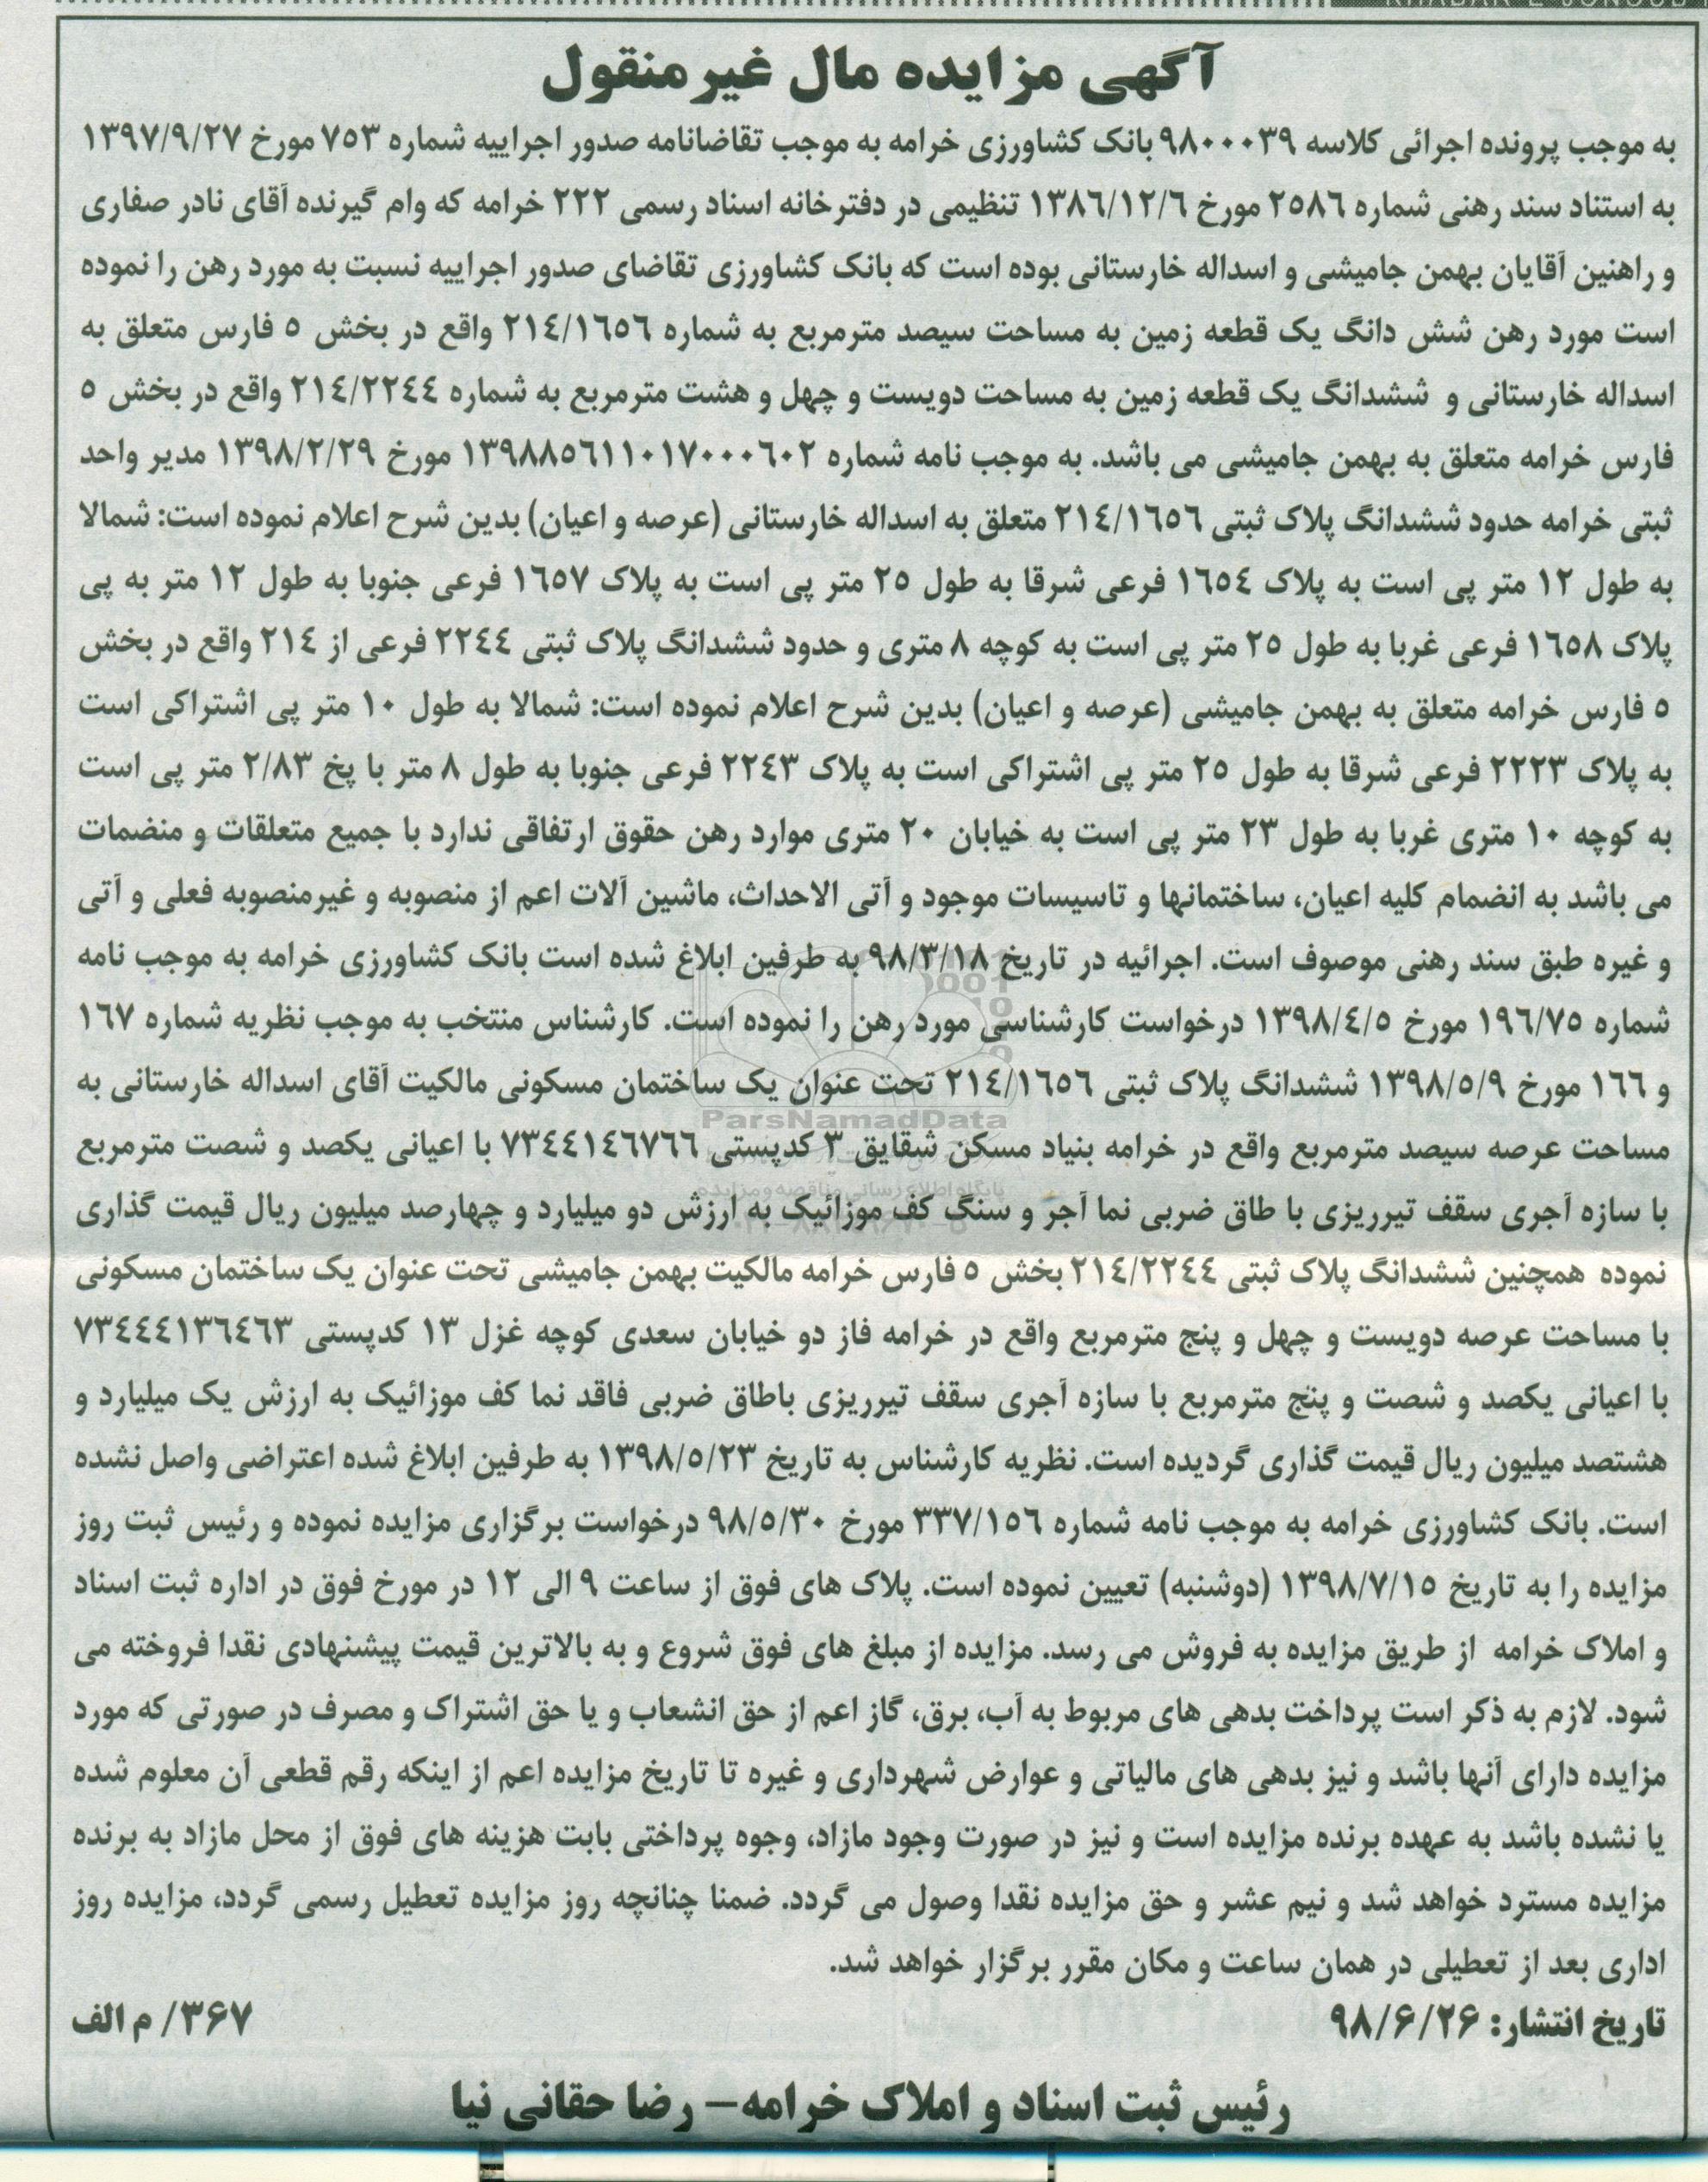 KHABAR-E JONOUB
آگهی مزایده مال غیرمنقول
به موجب پرونده اجرائی کلاسه ۹۸۰۰۰۳۹ بانک کشاورزی خرامه به موجب تقاضانامه صدور اجراییه شماره ۷۵۳ مورخ ۱۳۹۷/۹/۲۷
به استناد سند رهنی شماره ۲۵۸٦ مورخ ۱۳۸٦/۱۲/٦ تنظیمی در دفترخانه اسناد رسمی ۲۲۲ خرامه که وام گیرنده آقای نادر صفاری
و راهنین آقایان بهمن جامیشی و اسداله خارستانی بوده است که بانک کشاورزی تقاضای صدور اجراییه نسبت به مورد رهن را نموده
است مورد رهن شش دانگ یک قطعه زمین به مساحت سیصد مترمربع به شماره ۲۱٤/۱٦٥٦ واقع در بخش ٥ فارس متعلق به
اسداله خارستانی و ششدانگ یک قطعه زمین به مساحت دویست و چهل و هشت مترمربع به شماره ۲۱٤/۲۲٤٤ واقع در بخش ٥
فارس خرامه متعلق به بهمن جامیشی می باشد. به موجب نامه شماره ۱۳۹۸۸٥٦۱۱۰۱۷۰۰۰٦۰۲ مورخ ۱۳۹۸/۲/۲۹ مدیر واحد
ثبتی خرامه حدود ششدانگ پلاک ثبتی ۲۱٤/۱٦٥٦ متعلق به اسداله خارستانی (عرصه و اعیان) بدین شرح اعلام نموده است: شمالا
به طول ۱۲ متر پی است به پلاک ۱٦٥٤ فرعی شرقا به طول ۲٥ متر پی است به پلاک ۱٦٥۷ فرعی جنوبا به طول ۱۲ متر به پی
پلاک ۱٦٥۸ فرعی غربا به طول ۲٥ متر پی است به کوچه ۸ متری و حدود ششدانگ پلاک ثبتی ۲۲٤٤ فرعی از ۲۱٤ واقع در بخش
٥ فارس خرامه متعلق به بهمن جامیشی (عرصه و اعیان) بدین شرح اعلام نموده است: شمالا به طول ۱۰ متر پی اشتراکی است
به پلاک ۲۲۲۳ فرعی شرقا به طول ۲٥ متر پی اشتراکی است به پلاک ۲۲٤۳ فرعی جنوبا به طول ۸ متر با پخ ۲/۸۳ متر پی است
به کوچه ۱۰ متری غربا به طول ۲۳ متر پی است به خیابان ۲۰ متری موارد رهن حقوق ارتفاقی ندارد با جمیع متعلقات و منضمات
می باشد به انضمام کلیه اعیان، ساختمانها و تاسیسات موجود و آتی الاحداث، ماشین آلات اعم از منصوبه و غیرمنصوبه فعلی و آتی
و غیره طبق سند رهنی موصوف است. اجرائیه در تاریخ ۹۸/۳/۱۸ به طرفین ابلاغ شده است بانک کشاورزی خرامه به موجب نامه
شماره ۱۹٦/۷٥ مورخ ۱۳۹۸/٤/٥ درخواست کارشناسی مورد رهن را نموده است. کارشناس منتخب به موجب نظریه شماره ۱٦۷
و ۱٦٦ مورخ ۱۳۹۸/٥/۹ ششدانگ پلاک ثبتی ۲۱٤/۱٦٥٦ تحت عنوان یک ساختمان مسکونی مالکیت آقای اسداله خارستانی به
ParsNamadData
مساحت عرصه سیصد مترمربع واقع در خرامه بنیاد مسکن شقایق ۳ کدپستی ۷۳٤٤۱٤٦۷٦٦ با اعیانی یکصد و شصت مترمربع
پایگاه اطلاع رسانی مناقصه و مزایده
با سازه آجری سقف تیرریزی با طاق ضربی نما آجر و سنگ کف موزائیک به ارزش دو میلیارد و چهارصد میلیون ریال قیمت گذاری
نموده همچنین ششدانگ پلاک ثبتی ۲۱٤/۲۲٤٤ بخش ٥ فارس خرامه مالکیت بهمن جامیشی تحت عنوان یک ساختمان مسکونی
با مساحت عرصه دویست و چهل و پنج مترمربع واقع در خرامه فاز دو خیابان سعدی کوچه غزل ۱۳ کدپستی ۷۳٤٤٤۱۳٦٤٦۳
با اعیانی یکصد و شصت و پنج مترمربع با سازه آجری سقف تیرریزی باطاق ضربی فاقد نما کف موزائیک به ارزش یک میلیارد و
هشتصد میلیون ریال قیمت گذاری گردیده است. نظریه کارشناس به تاریخ ۱۳۹۸/٥/۲۳ به طرفین ابلاغ شده اعتراضی واصل نشده
است. بانک کشاورزی خرامه به موجب نامه شماره ۳۳۷/۱٥٦ مورخ ۹۸/٥/۳۰ درخواست برگزاری مزایده نموده و رئیس ثبت روز
مزایده را به تاریخ ۱۳۹۸/۷/۱٥ (دوشنبه) تعیین نموده است. پلاک های فوق از ساعت ۹ الی ۱۲ در مورخ فوق در اداره ثبت اسناد
و املاک خرامه از طریق مزایده به فروش می رسد. مزایده از مبلغ های فوق شروع و به بالاترین قیمت پیشنهادی نقدا فروخته می
شود. لازم به ذکر است پرداخت بدهی های مربوط به آب، برق، گاز اعم از حق انشعاب و یا حق اشتراک و مصرف در صورتی که مورد
مزایده دارای آنها باشد و نیز بدهی های مالیاتی و عوارض شهرداری و غیره تا تاریخ مزایده اعم از اینکه رقم قطعی آن معلوم شده
یا نشده باشد به عهده برنده مزایده است و نیز در صورت وجود مازاد، وجوه پرداختی بابت هزینه های فوق از محل مازاد به برنده
مزایده مسترد خواهد شد و نیم عشر و حق مزایده نقدا وصول می گردد. ضمنا چنانچه روز مزایده تعطیل رسمی گردد، مزایده روز
اداری بعد از تعطیلی در همان ساعت و مکان مقرر برگزار خواهد شد.
تاریخ انتشار: ۹۸/۶/۲۶
۳۶۷/ م الف
رئیس ثبت اسناد و املاک خرامه– رضا حقانی نیا